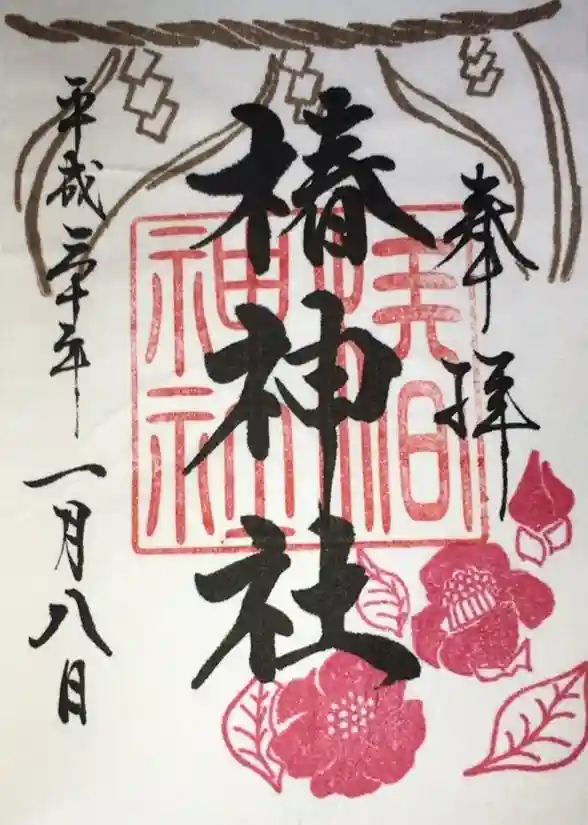 奉拝
椿神社
椿神社
平成三十年一月八日